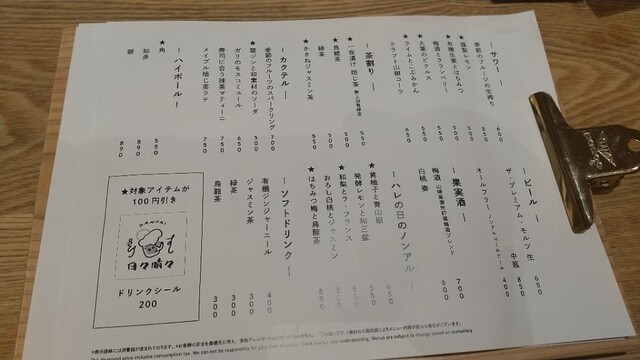 ーサワーー
季節のフルーツの生搾り 600
★燻製レモン 550
★有機生姜とはちみつ 550
★梅酒とクランベリー 550
★大葉のピクルス 550
★ライムとこぶみかん 550
クラフト山椒コーラ 650
ー茶割りー
★一夜漬け焙じ茶 550
★烏龍茶 500
緑茶 500
かさねジャスミン茶 550
ーカクテルー
季節のフルーツのスパークリング 700
★塩ジンと和素材のソーダ 500
ガリのモスコミュール 650
寿司に合う抹茶マティーニ 750
メイプル焙じ茶ラテ 750
ーハイボールー
★角 550
知多 890
碧 890
ービールー
ザ・プレミアム・モルツ 生 650
中瓶 850
オールフリー 400
ー果実酒ー
梅酒 700
白桃 600
ーハレの日のノンアルー
★黄柚子と青山椒 550
発酵レモンと和三盆 550
★和梨とラ・フランス
おろし白桃とジャスミン
★はちみつ梅と烏龍茶 500
ーソフトドリンクー
有機ジンジャーエール 400
ジャスミン茶 300
緑茶 300
烏龍茶 300
★対象アイテムが
100円引き
KANPAI!
日々晴々
ドリンクシール
200